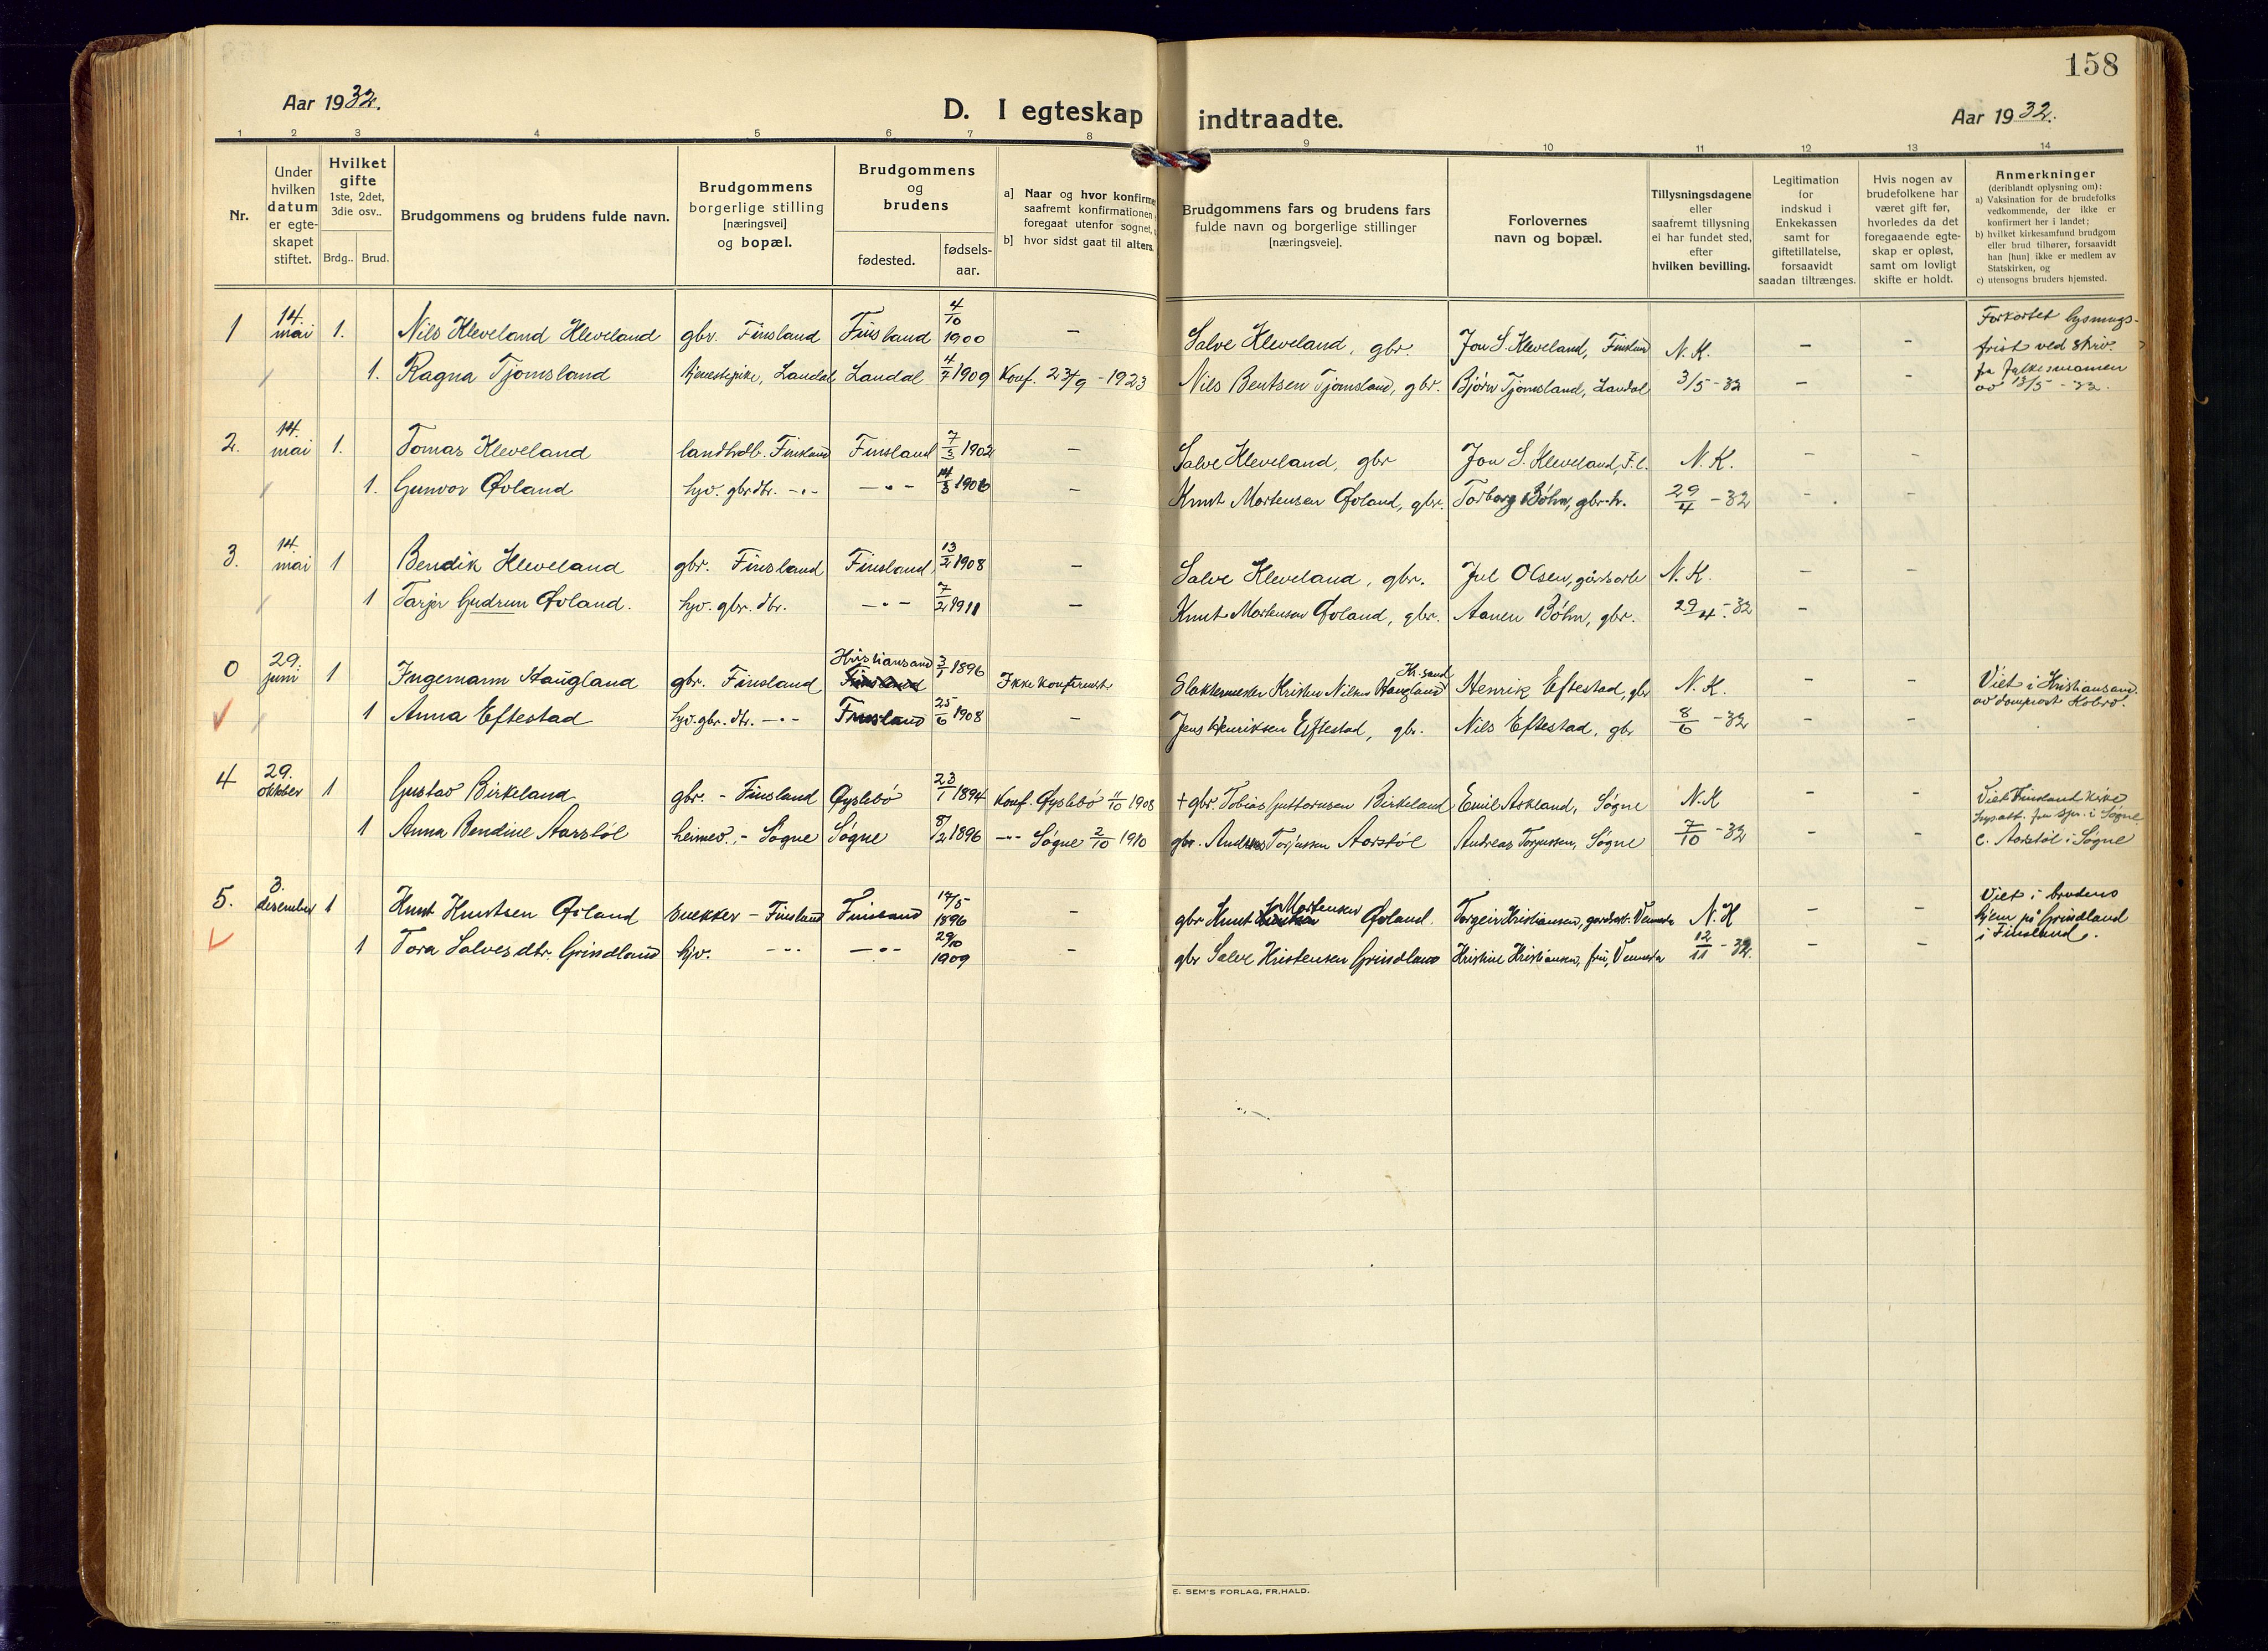 158
Aar 1932.
D. I egteskap indtraadte.
Aar 1932.
1 2 3 4 5 6 7 8 9 10 11 12 13 14
Nr.
Under
hvilken
datum
er egte-
skapet
stiftet.
Hvilket
gifte
1ste, 2det,
3die osv..
Brdg.. Brud.
Brudgommens og brudens fulde navn.
Brudgommens
borgerlige stilling
[næringsvei]
og bopæl.
Brudgommens
og
brudens
fødested.
fødsels-
aar.
a] Naar og hvor konfirme
saafremt konfirmationen
foregaat utenfor sognet,
b] hvor sidst gaat til alters.
Brudgommens fars og brudens fars
fulde navn og borgerlige stillinger
[næringsveie].
Forlovernes
navn og bopæl.
Tillysningsdagene
eller
saafremt tillysning
ei har fundet sted,
efter
hvilken bevilling.
Legitimation
for
indskud i
Enkekassen
samt for
giftetillatelse,
forsaavidt
saadan tiltrænges.
Hvis nogen av
brudefolkene har
været gift før,
hvorledes da det
foregaaende egte-
skap er opløst,
samt om lovligt
skifte er holdt.
Anmerkninger
(deriblandt oplysning om):
a) Vaksination for de brudefolks
vedkommende, der ikke er
konfirmert her i landet;
b) hvilket kirkesamfund brudgom
eller brud tilhører, forsaavidt
han [hun] ikke er medlem av
Statskirken, og
c) utensogns bruders hjemsted.
1 14. mai 1. Nils Kleveland Kleveland gbr. Finsland Finsland 4/10 1900 – Salve Kleveland, gbr. Jon S. Kleveland, Finsland N.K. – – Forkortet lysnings-
frist ved skriv.
1. Ragna Tjomsland tjenestepike, Laudal Laudal 4/7 1909 Konf. 23/9 - 1923 Nils Bentsen Tjomsland, gbr. Bjørn Tjomsland, Laudal 3/5 - 32 – – fr. fylkesmannen
av 13/5 - 32.
2. 14. mai 1. Tomas Kleveland Finsland Finsland 7/5 1902 – Salve Kleveland, gbr Jon S. Kleveland, F.l. N.K. – –
1. Gunvor Øvland hjv. gbr.dtr. -"- -"- 14/3 1906 – Knut Mortensen Øvland, gbr. Torborg Bøhn, gbr.-h. 29/4 - 32 – –
3. 14. mai 1 Bendik Kleveland gbr. Finsland Finsland 13/2 1908 – Salve Kleveland, gbr. Jul Olsen, N.K. – –
1 Tarjer Gudrun Øvland. hjv. gbr. dtr. -"- 7/2 1911 – Knut Mortensen Øvland, gbr. Aanen Bøhn, gbr. 29/4 - 32 –
0 29. juni 1 Ingemann Haugland gbr. Finsland Kristiansand Finsland 3/1 1896 Ikke konfirmert Slaktermester Kristen Nilsen Haugland Kr.sand Henrik Eftestad, gbr N.K. – – Viet i Kristiansand
av domprost Kobro.
1 Anna Eftestad hjv. gbr. dtr. -"- Finsland 25/6 1908 – Jens Henriksen Eftestad, gbr. Nils Eftestad, gbr 8/6 - 32 – –
4 29. oktober 1 Gustav Birkeland gbr. - Finsland Øyslebø 23/1 1894 Konf. Øyslebø 11/10 1908 + gbr. Tobias Guttormsen Birkeland Emil Askland, Søgne N.K – – Viet Finsland kirke
1 Anna Bendine Aarstøl heimev. - Søgne Søgne 8/2 1896 -"- Søgne 2/10 1910 gbr. Andreas Torjussen Aarstøl Andreas Torjussen, Søgne 7/10 - 32 – – lysatt. fra spr. i Søgne
c. Aarstøl i Søgne
5. 3. desember 1 Knut Knutsen Øvland snekker - Finsland Finsland 17/5 1896 – gbr Knut Knutsen Mortensen Øvland. Torgeir Kristiansen, Vennesla N.K – – Viet i brudens
hjem på Grindland
i Finsland.
1 Tora Salvesdtr. Grindland hjv. -"- -"- 29/10 1909 – gbr Salve Kristensen Grindland Kristine Kristiansen, fru, Vennesla 12/11 - 32. – –
E. SEM'S FORLAG, FR.HALD.